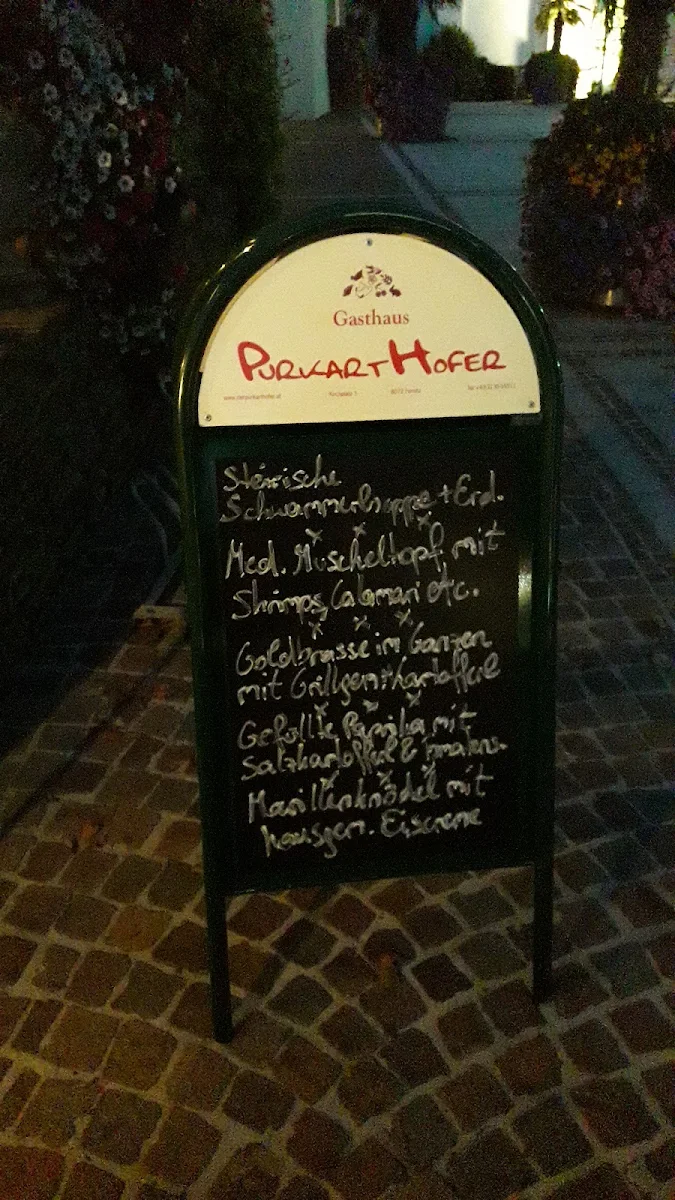 Gasthaus
PURKARTHOFER
Steirische
Schwammerlsuppe + Erd.
x x x
Med. Muscheltopf mit
Shrimps, Calamari etc.
x x x
Goldbrasse im Ganzen
mit Grillgem. + Kartofferl
x x x
Gefüllte Paprika mit
Salzkartofferl & Tomatens.
x x x
Marillenknödel mit
hausgem. Eiscreme